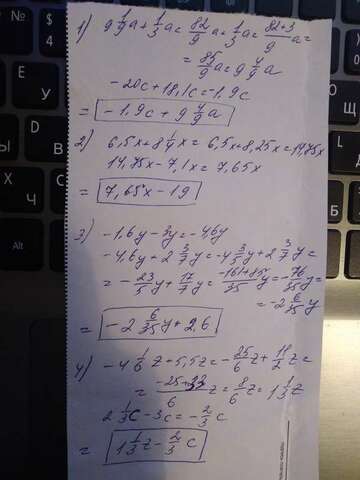 1) 9 1/9 a + 1/3 a = 82/9 a + 1/3 a = 82+3/9 a =
= 85/9 a = 9 4/9 a
-20c + 18,1c = -1,9c
= -1,9c + 9 4/9 a
2) 6,5x + 8 1/4 x = 6,5x + 8,25x = 14,75x
14,75x - 7,1x = 7,65x
= 7,65x - 19
3) -1,6y - 3y = -4,6y
-4,6y + 2 3/7 y = -4 3/5 y + 2 3/7 y =
= -23/5 y + 17/7 y = -161+85/35 y = -76/35 y =
= -2 6/35 y
= -2 6/35 y + 26
4) -4 1/6 z + 5,5z = -25/6 z + 11/2 z =
= -25+33/6 z = 8/6 z = 1 1/3 z
2 1/3 c - 3c = -2/3 c
= 1 1/3 z - 2/3 c